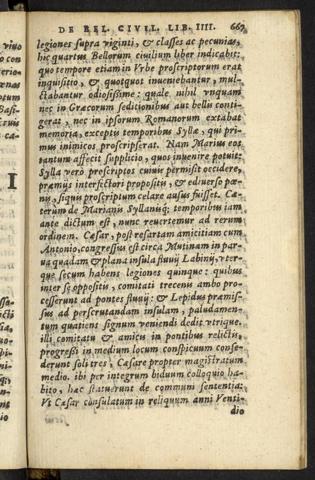 DE BEL. CIVIL. LIB. IIII. 667
legiones supra viginti, & classes ac pecunias,
hic quartus Bellorum civilium liber indicabit:
quo tempore etiam in Vrbe proscriptorum erat
inquisitio, & quotquot inueniebantur, mul-
ctabantur odiosissime: quale nihil vnquam
nec in Græcorum seditionibus aut belli contigerat
gerat, nec in ipsorum Romanorum extabat
memoria, exceptis temporibus Syllæ, qui pri-
mus inimicos proscripserat. Nam Marius eos
tantum affecit supplicio, quos inuenire potuit:
Sylla verò proscriptos cuiuis permisit occidere,
præmijs interfectori propositis, & ediuerso pœ-
nis, siquis proscriptum celare ausus fuisset. Cæ-
terùm de Marianis Syllanisq; temporibus iam
ante dictum est, nunc reuertemur ad rerum
ordinem. Cæsar, post resartam amicitiam cum
Antonio, congressus est circa Mutinam in par-
ua quadam & plana insula fluuij Labinij, vter-
que secum habens legiones quinque: quibus
inter se oppositis, comitati trecenis ambo pro-
cesserunt ad pontes fluuij: & Lepidus præmis-
sus ad perscrutandam insulam, paludamen-
tum quatiens signum veniendi dedit vtrique.
illi comitatu & amicis in pontibus relictis,
progressi in medium locum conspicuum conse-
derunt soli tres, Cæsare propter magistratum
medio. ibi per integrum biduum colloquio ha-
bito, hæc statuerunt de communi sententia:
Vt Cæsar consulatum in reliquum anni Venti-
dio